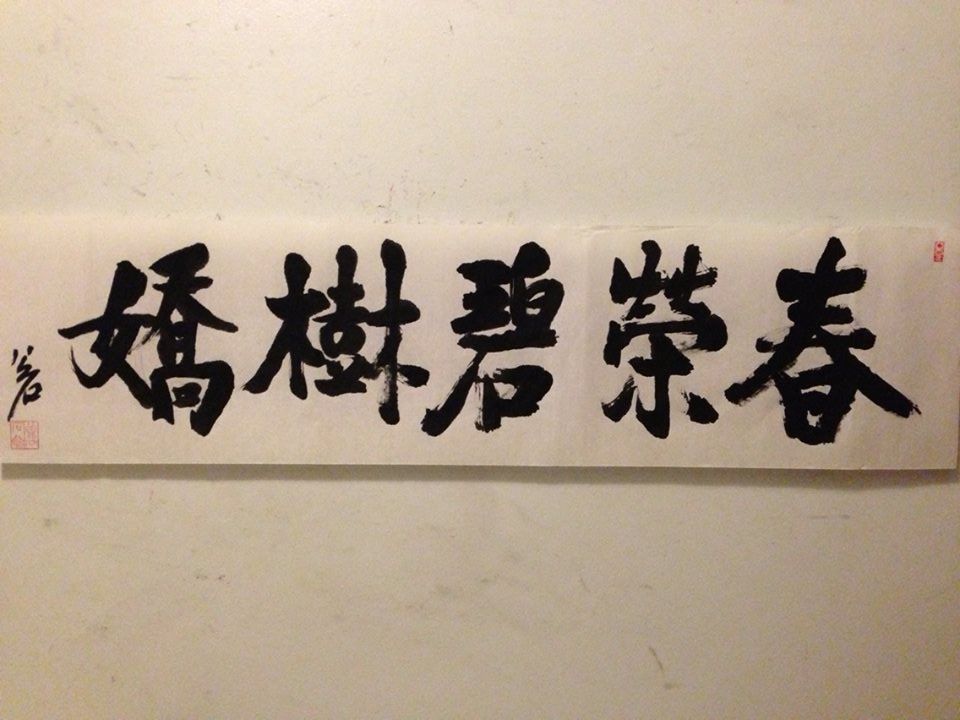 春榮碧樹嬌